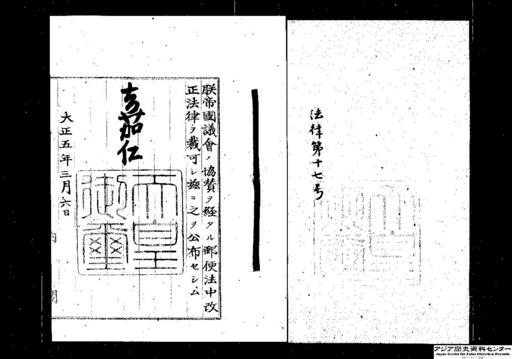 法律第十七号
朕帝國議會ノ協贊ヲ經タル郵便法中改
正法律ヲ裁可シ玆ニ之ヲ公布セシム
嘉仁
天皇
御璽
大正五年三月六日
内閣
アジア歴史資料センター
Japan Center for Asian Historical Records